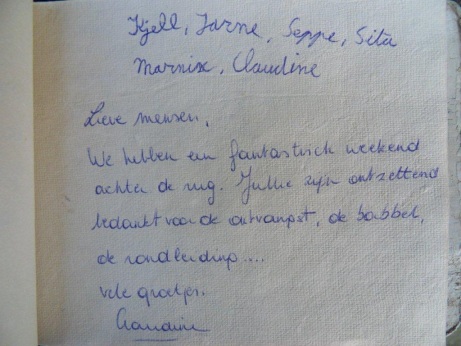 Kjell, Jarne, Seppe, Sita
Marnix, Claudine
Lieve mensen,
We hebben een fantastisch weekend
achter de rug. Jullie zijn ontzettend
bedankt voor de ontvangst, de babbel,
de rondleiding....
vele groetjes.
Claudine